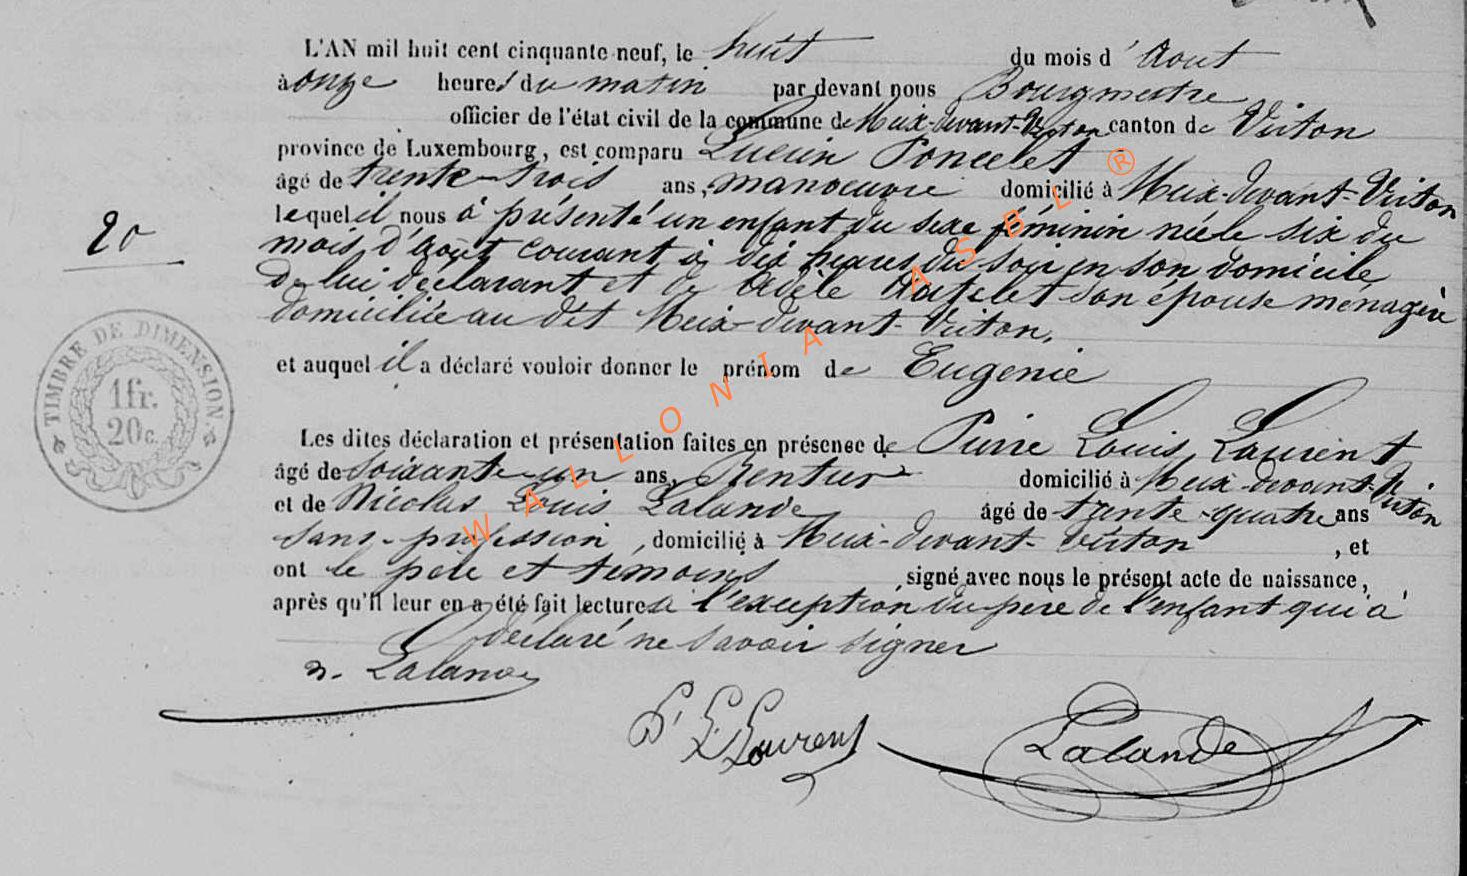 L'AN mil huit cent cinquante-neuf, le huit du mois d'Aout
à onze heures du matin par devant nous Bourgmestre
officier de l'état civil de la commune de Meix-devant-Virton canton de Virton
province de Luxembourg, est comparu Lucien Poncelet
âgé de trente-trois ans, manoeuvre domicilié à Meix-devant-Virton
lequel il nous à présenté un enfant du sexe féminin née le six du
mois d'Aout courant à dix heures du soir en son domicile
de lui déclarant et de Adèle son épouse ménagère
domiciliée au dit Meix-devant-Virton.
20
et auquel il a déclaré vouloir donner le prénom de Eugenie
TIMBRE DE DIMENSION.
1 fr.
20 c.
Les dites déclaration et présentation faites en présense de Pierre Louis Laurent
âgé de soixante-un ans, Rentier domicilié à Meix-devant-Virton
et de Nicolas Louis Lalande âgé de trente-quatre ans
sans-profession, domicilié à Meix-devant-Virton, et
ont le père et temoins signé avec nous le présent acte de naissance,
après qu'il leur en a été fait lecture à l'exception du père de l'enfant qui à
déclaré ne savoir signer
n. Lalande
P. L. Laurent
Lalande
WALLONIA ASBL ®